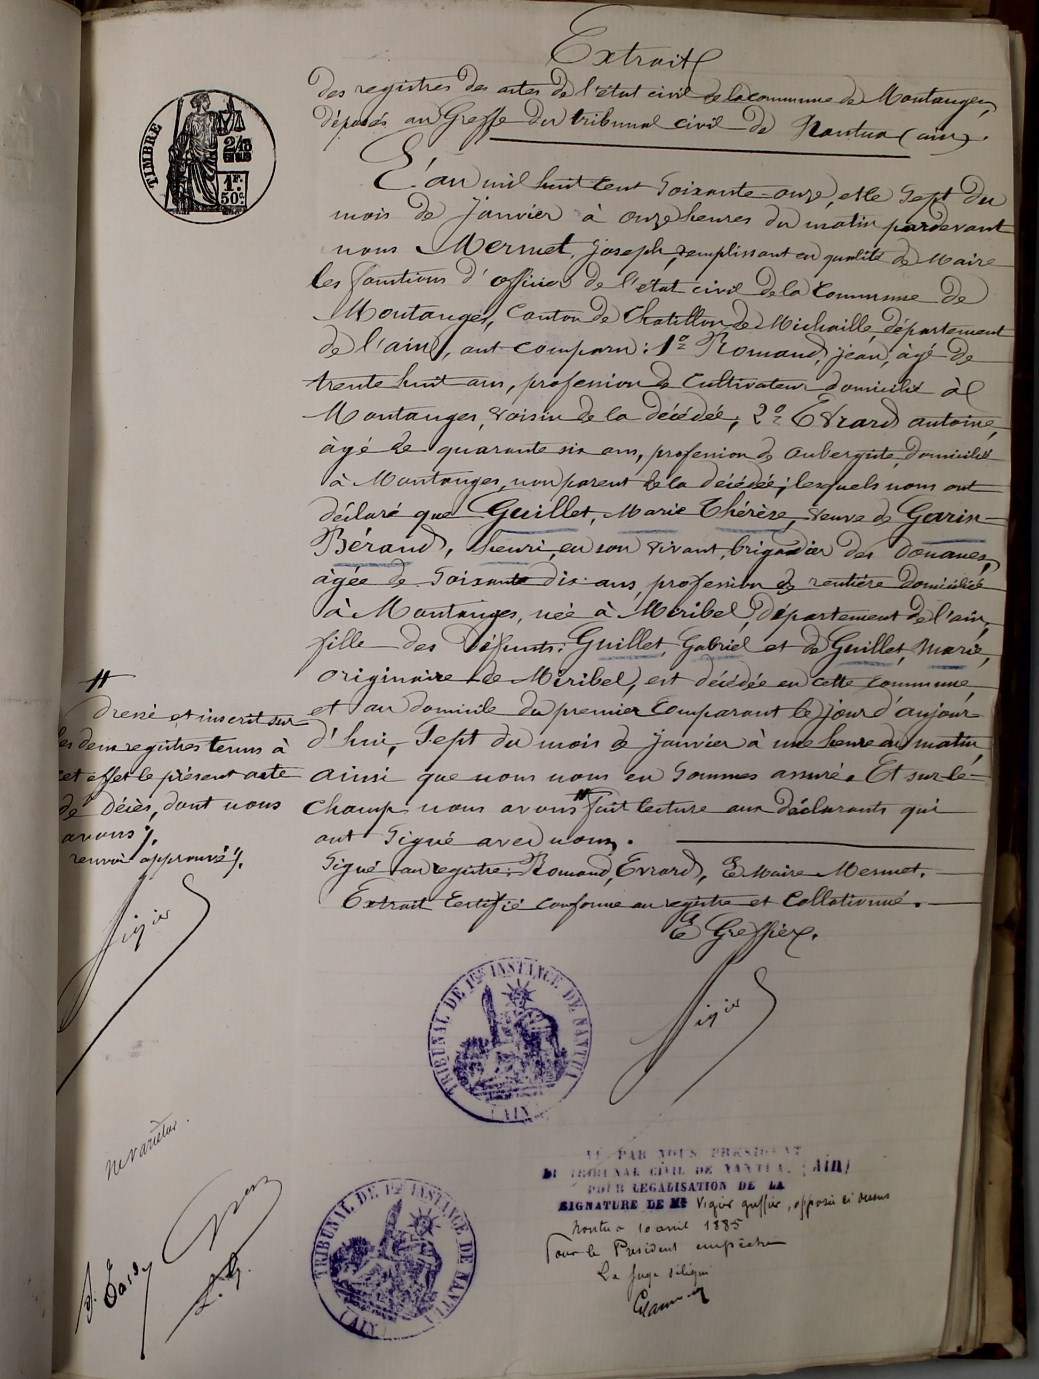 Extrait
des registres des actes de l'état civil de la commune de Montanges,
déposés au Greffe du tribunal civil de Nantua (ain).
TIMBRE
2/10
EN SUS
1F.
50c.
L'an mil huit cent soixante-onze, et le sept du
mois de janvier à onze heures du matin pardevant
nous Mermet, Joseph, remplissant en qualité de Maire
les fonctions d'officier de l'état civil de la Commune de
Montanges, Canton de Chatillon de Michaille, département
de l'ain, ont comparu: 1º Romand, jean, âgé de
trente huit ans, profession de Cultivateur domicilié à
Montanges, voisin de la décédée; 2º Evrard antoine,
âgé de quarante six ans, profession de aubergiste, domicilié
à Montanges, non parent de la décédée; lesquels nous ont
déclaré que Guillet, Marie Thérèse, veuve de Garin-
Béraud, henri, en son vivant, brigadier des douanes,
âgée de soixante dix ans, profession de rentière domiciliée
à Montanges, née à Miribel, département de l'ain,
fille des défunts: Guillet, Gabriel et de Guillet, Marie,
originaire de Miribel, est décédée en cette commune,
et au domicile du premier comparant le jour d'aujour
d'hui, sept du mois de janvier à une heure du matin,
ainsi que nous nous en sommes assuré. Et sur-le-
champ nous avons # fait lecture aux déclarants qui
ont signé avec nous.
#
dressé et inscrit sur
les deux registres tenus à
cet effet le présent acte
de décès, dont nous
avons ./.
renvoi approuvé ./.
Vigier
Signé au registre: Romand, Evrard, Le Maire Mermet.
Extrait Certifié conforme au registre et Collationné.
Le Greffier.
Vigier
TRIBUNAL DE 1re INSTANCE DE NANTUA
(AIN)
Ne varietur.
VU PAR NOUS PRESIDENT
DU TRIBUNAL CIVIL DE NANTUA. (AIN)
POUR LEGALISATION DE LA
SIGNATURE DE Me Vigier greffier, apposée ci dessus
Nantua 10 avril 1885
Pour le Président empêché
Le juge délégué
TRIBUNAL DE 1re INSTANCE DE NANTUA
(AIN)